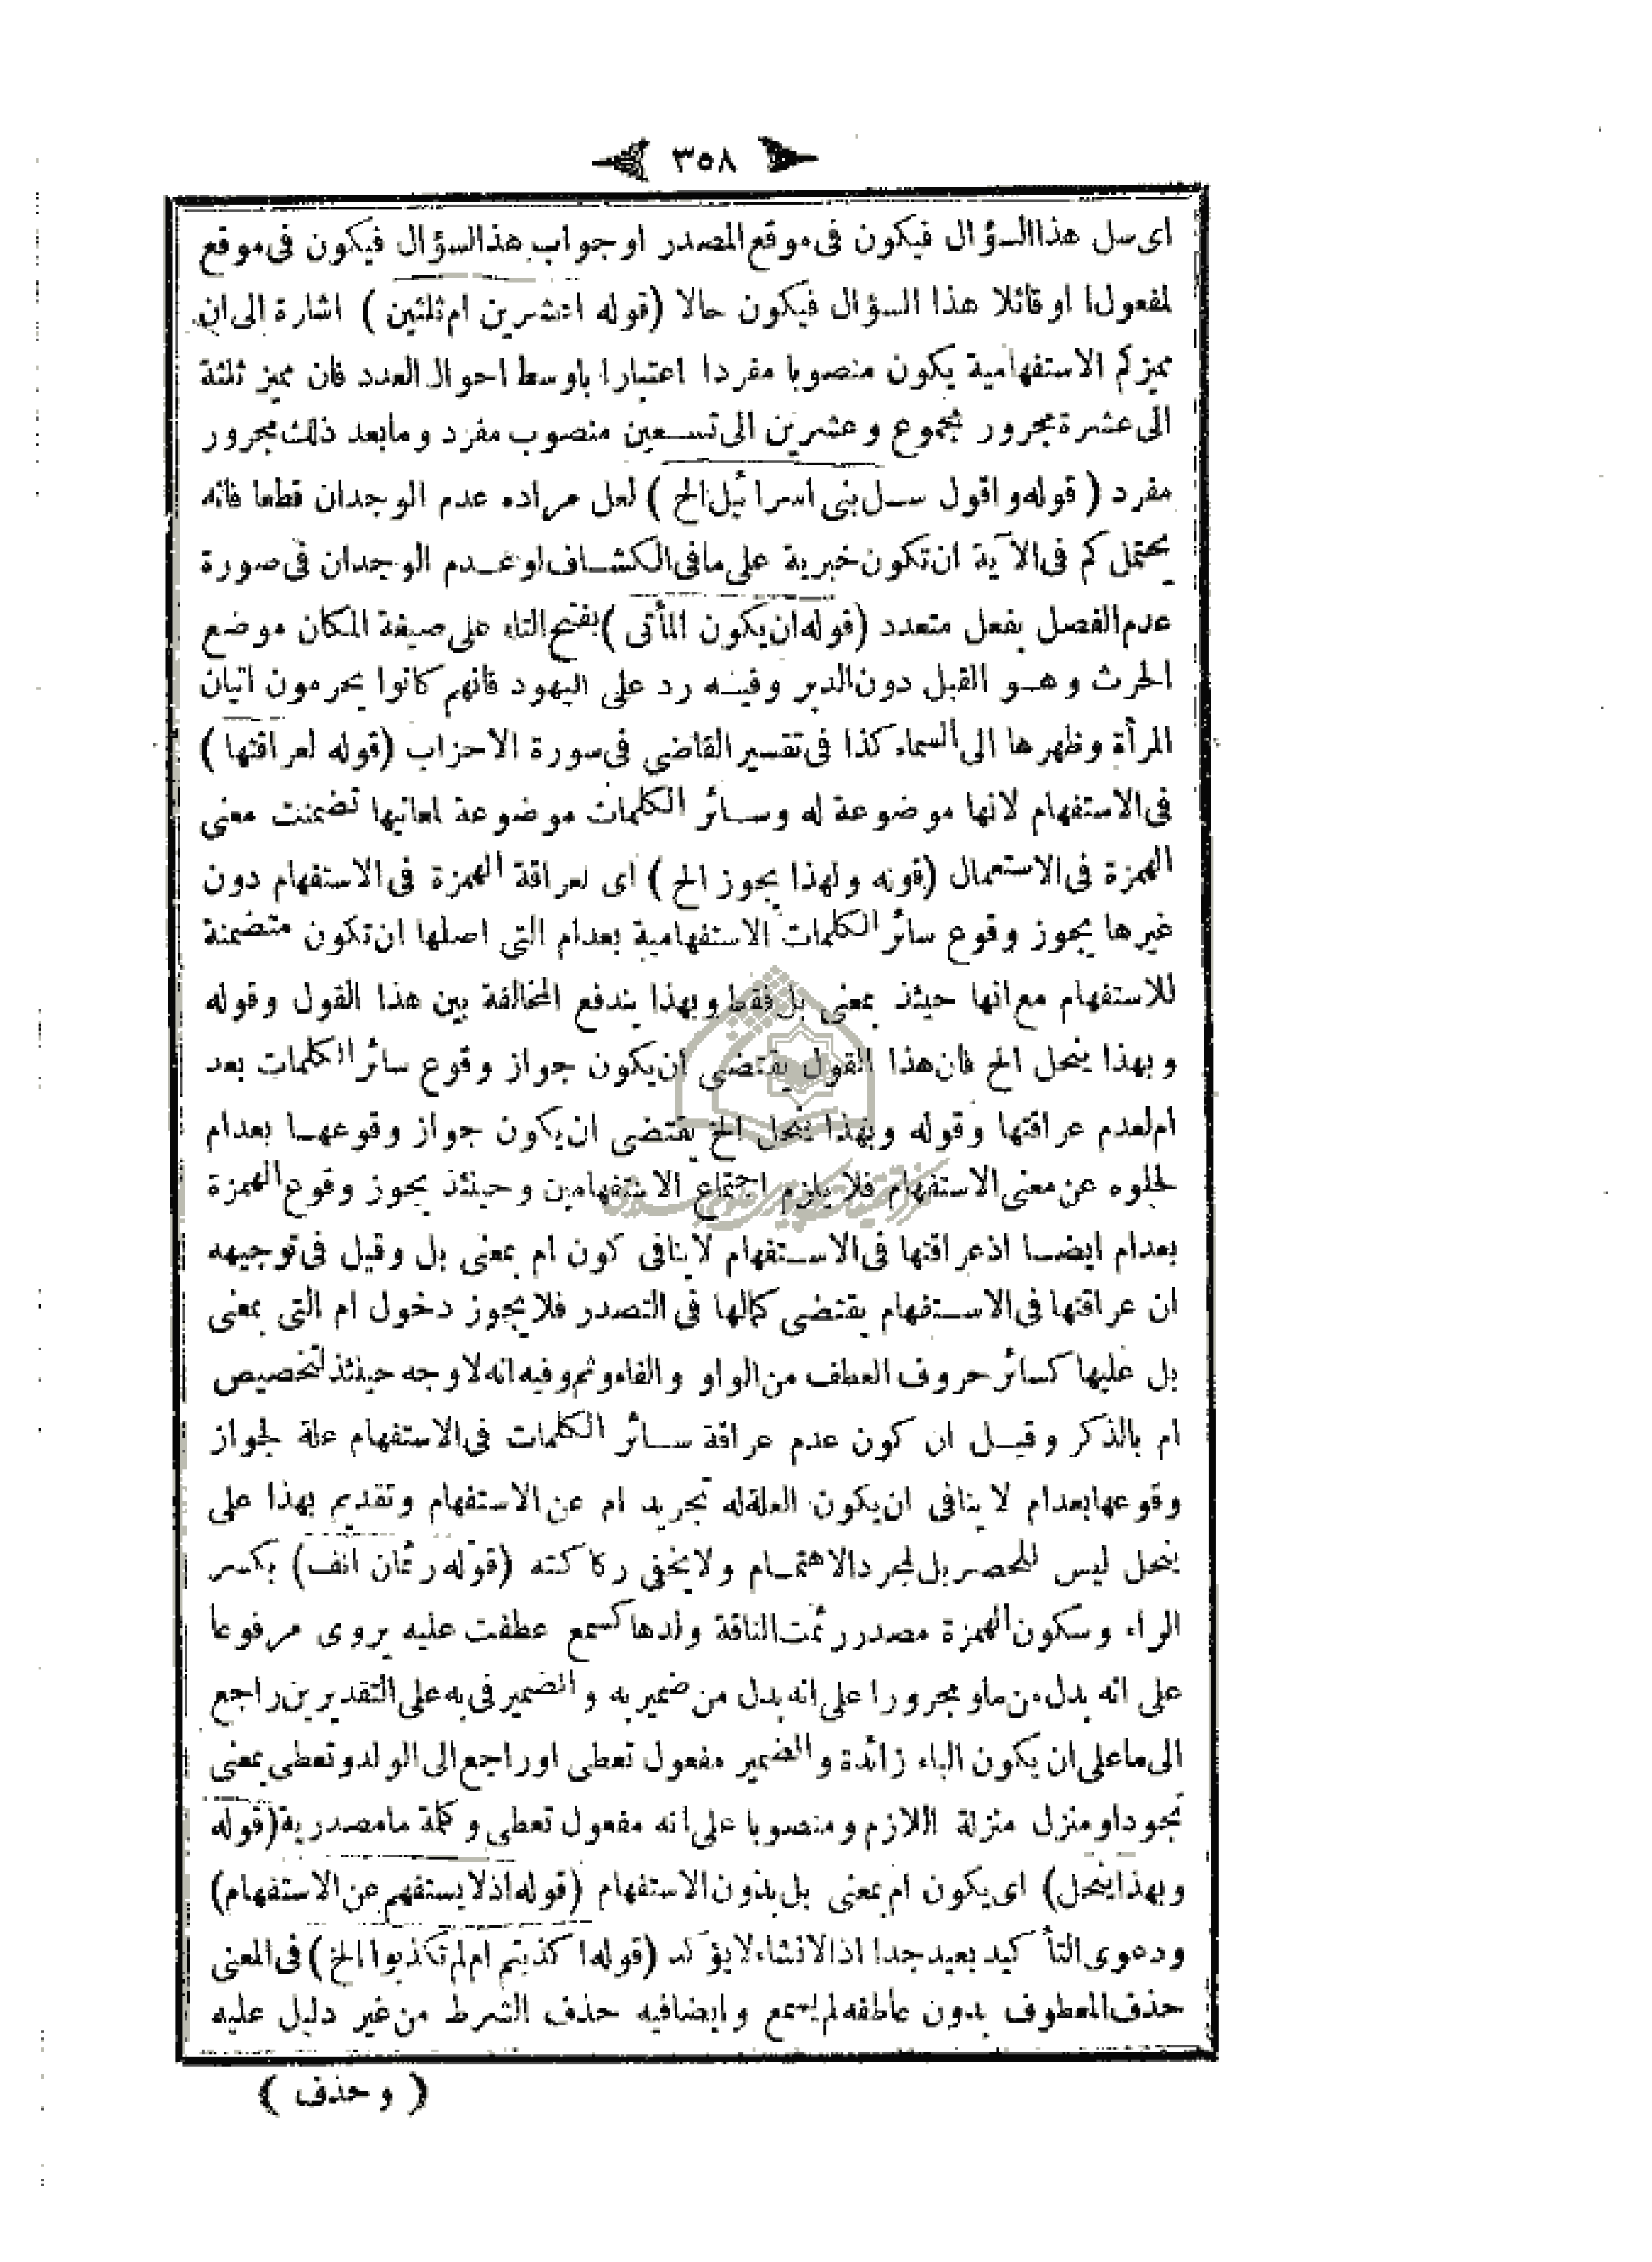 ٣٥٨
اى سل هذا السؤال فيكون فى موقع المصدر او جواب هذ السؤال فيكون فى موقع
لمفعولا او قائلا هذا السؤال فيكون حالا (قوله اعشرين ام ثلثين) اشارة الى ان
مميز كم الاستفهامية يكون منصوبا مفردا اعتبارا باوسط احوال العدد فان مميز ثلثة
الى عشرة مجرور مجموع وعشرين الى تسعين منصوب مفرد ومابعد ذلك مجرور
مفرد (قوله واقول سل بنى اسرائيل الخ) لعل مراده عدم الوجدان قطعا فانه
يحتمل كم فى الآية ان تكون خبرية على مافى الكشاف او عدم الوجدان فى صورة
عدم الفصل بفعل متعدد (قوله ان يكون المأتى) بفتح التاء على صيغة المكان موضع
الحرث وهو القبل دون الدبر وفيه رد على اليهود فانهم كانوا يحرمون اتيان
المرأة وظهرها الى السماء كذا فى تفسير القاضى فى سورة الاحزاب (قوله لعراقتها)
فى الاستفهام لانها موضوعة له وسائر الكلمات موضوعة لمعانيها تضمنت معنى
الهمزة فى الاستعمال (قوله ولهذا يجوز الخ) اى لعراقة الهمزة فى الاستفهام دون
غيرها يجوز وقوع سائر الكلمات الاستفهامية بعدام التى اصلها ان تكون متضمنة
للاستفهام مع انها حيئذ بمعنى بل فقط وبهذا يندفع المخالفة بين هذا القول وقوله
وبهذا ينحل الخ فان هذا القول يقتضى ان يكون جواز وقوع سائر الكلمات بعد
ام لعدم عراقتها وقوله وبهذا ينحل الخ يقتضى ان يكون جواز وقوعها بعدام
لخلوه عن معنى الاستفهام فلا يلزم اجتماع الاستفهامين وحينئذ يجوز وقوع الهمزة
بعدام ايضا اذ عراقتها فى الاستفهام لاينافى كون ام بمعنى بل وقيل فى توجيهه
ان عراقتها فى الاستفهام يقتضى كمالها فى التصدر فلا يجوز دخول ام التى بمعنى
بل عليها كسائر حروف العطف من الواو والفاء وثم وفيه انه لاوجه حينئذ لتخصيص
ام بالذكر وقيل ان كون عدم عراقة سائر الكلمات فى الاستفهام علة لجواز
وقوعها بعدام لا ينافى ان يكون العلة له تجريد ام عن الاستفهام وتقديم بهذا على
ينحل ليس للحصر بل لمجرد الاهتمام ولا يخفى ركاكته (قوله رئمان انف) بكسر
الراء وسكون الهمزة مصدر رئمت الناقة ولدها كسمع عطفت عليه يروى مرفوعا
على انه بدل من ما ومجرورا على انه بدل من ضمير به والضمير فى به على التقديرين راجع
الى ما على ان يكون الباء زائدة والضمير مفعول تعطى او راجع الى الولد وتعطى بمعنى
تجود او منزل منزلة اللازم ومنصوبا على انه مفعول تعطى وكلمة ما مصدرية (قوله
وبهذا ينحل) اى يكون ام بمعنى بل بدون الاستفهام (قوله اذلا يستفهم عن الاستفهام)
ودعوى التأكيد بعيد جدا اذ الانشاء لا يؤكد (قوله اكذبتم ام لم تكذبوا الخ) فى المعنى
حذف المعطوف بدون عاطفه لم يسمع وايضا فيه حذف الشرط من غير دليل عليه
(وحذف)